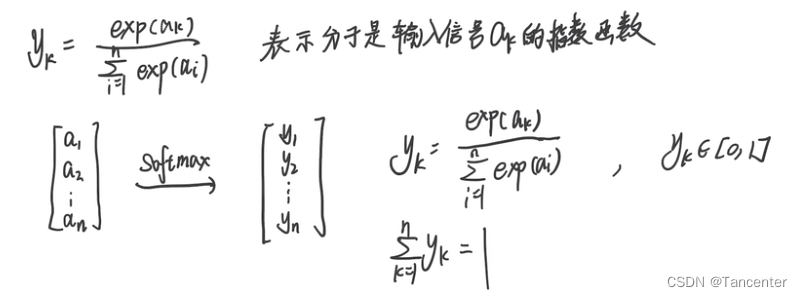 y_k = exp(a_k) / ∑_{i=1}^{n} exp(a_i) 表示分子是输入信号a_k的指数函数
[a_1 a_2 ⋮ a_n] softmax→ [y_1 y_2 ⋮ y_n] y_k = exp(a_k) / ∑_{i=1}^{n} exp(a_i) , y_k∈[0,1]
∑_{k=1}^{n} y_k = 1
CSDN @Tancenter